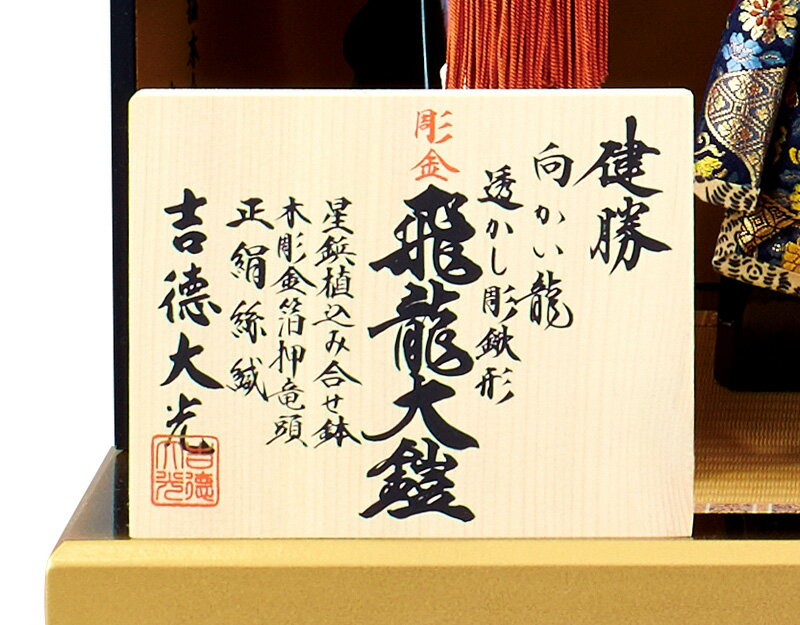 健勝
向かい龍
透かし彫鍬形
彫金
飛龍大鎧
星鋲植込み合せ鉢
木彫金箔押竜頭
正絹絲縅
吉德大光
吉德大光